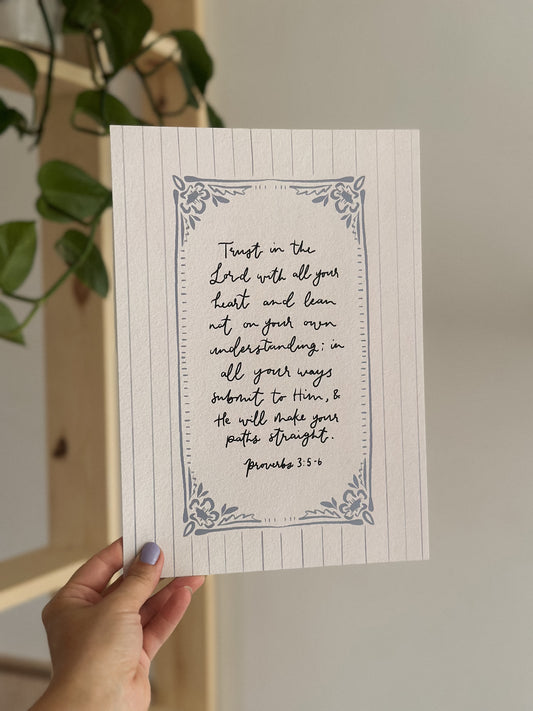 Trust in the
Lord with all your
heart and lean
not on your own
understanding; in
all your ways
submit to Him, &
He will make your
paths straight.
Proverbs 3:5-6